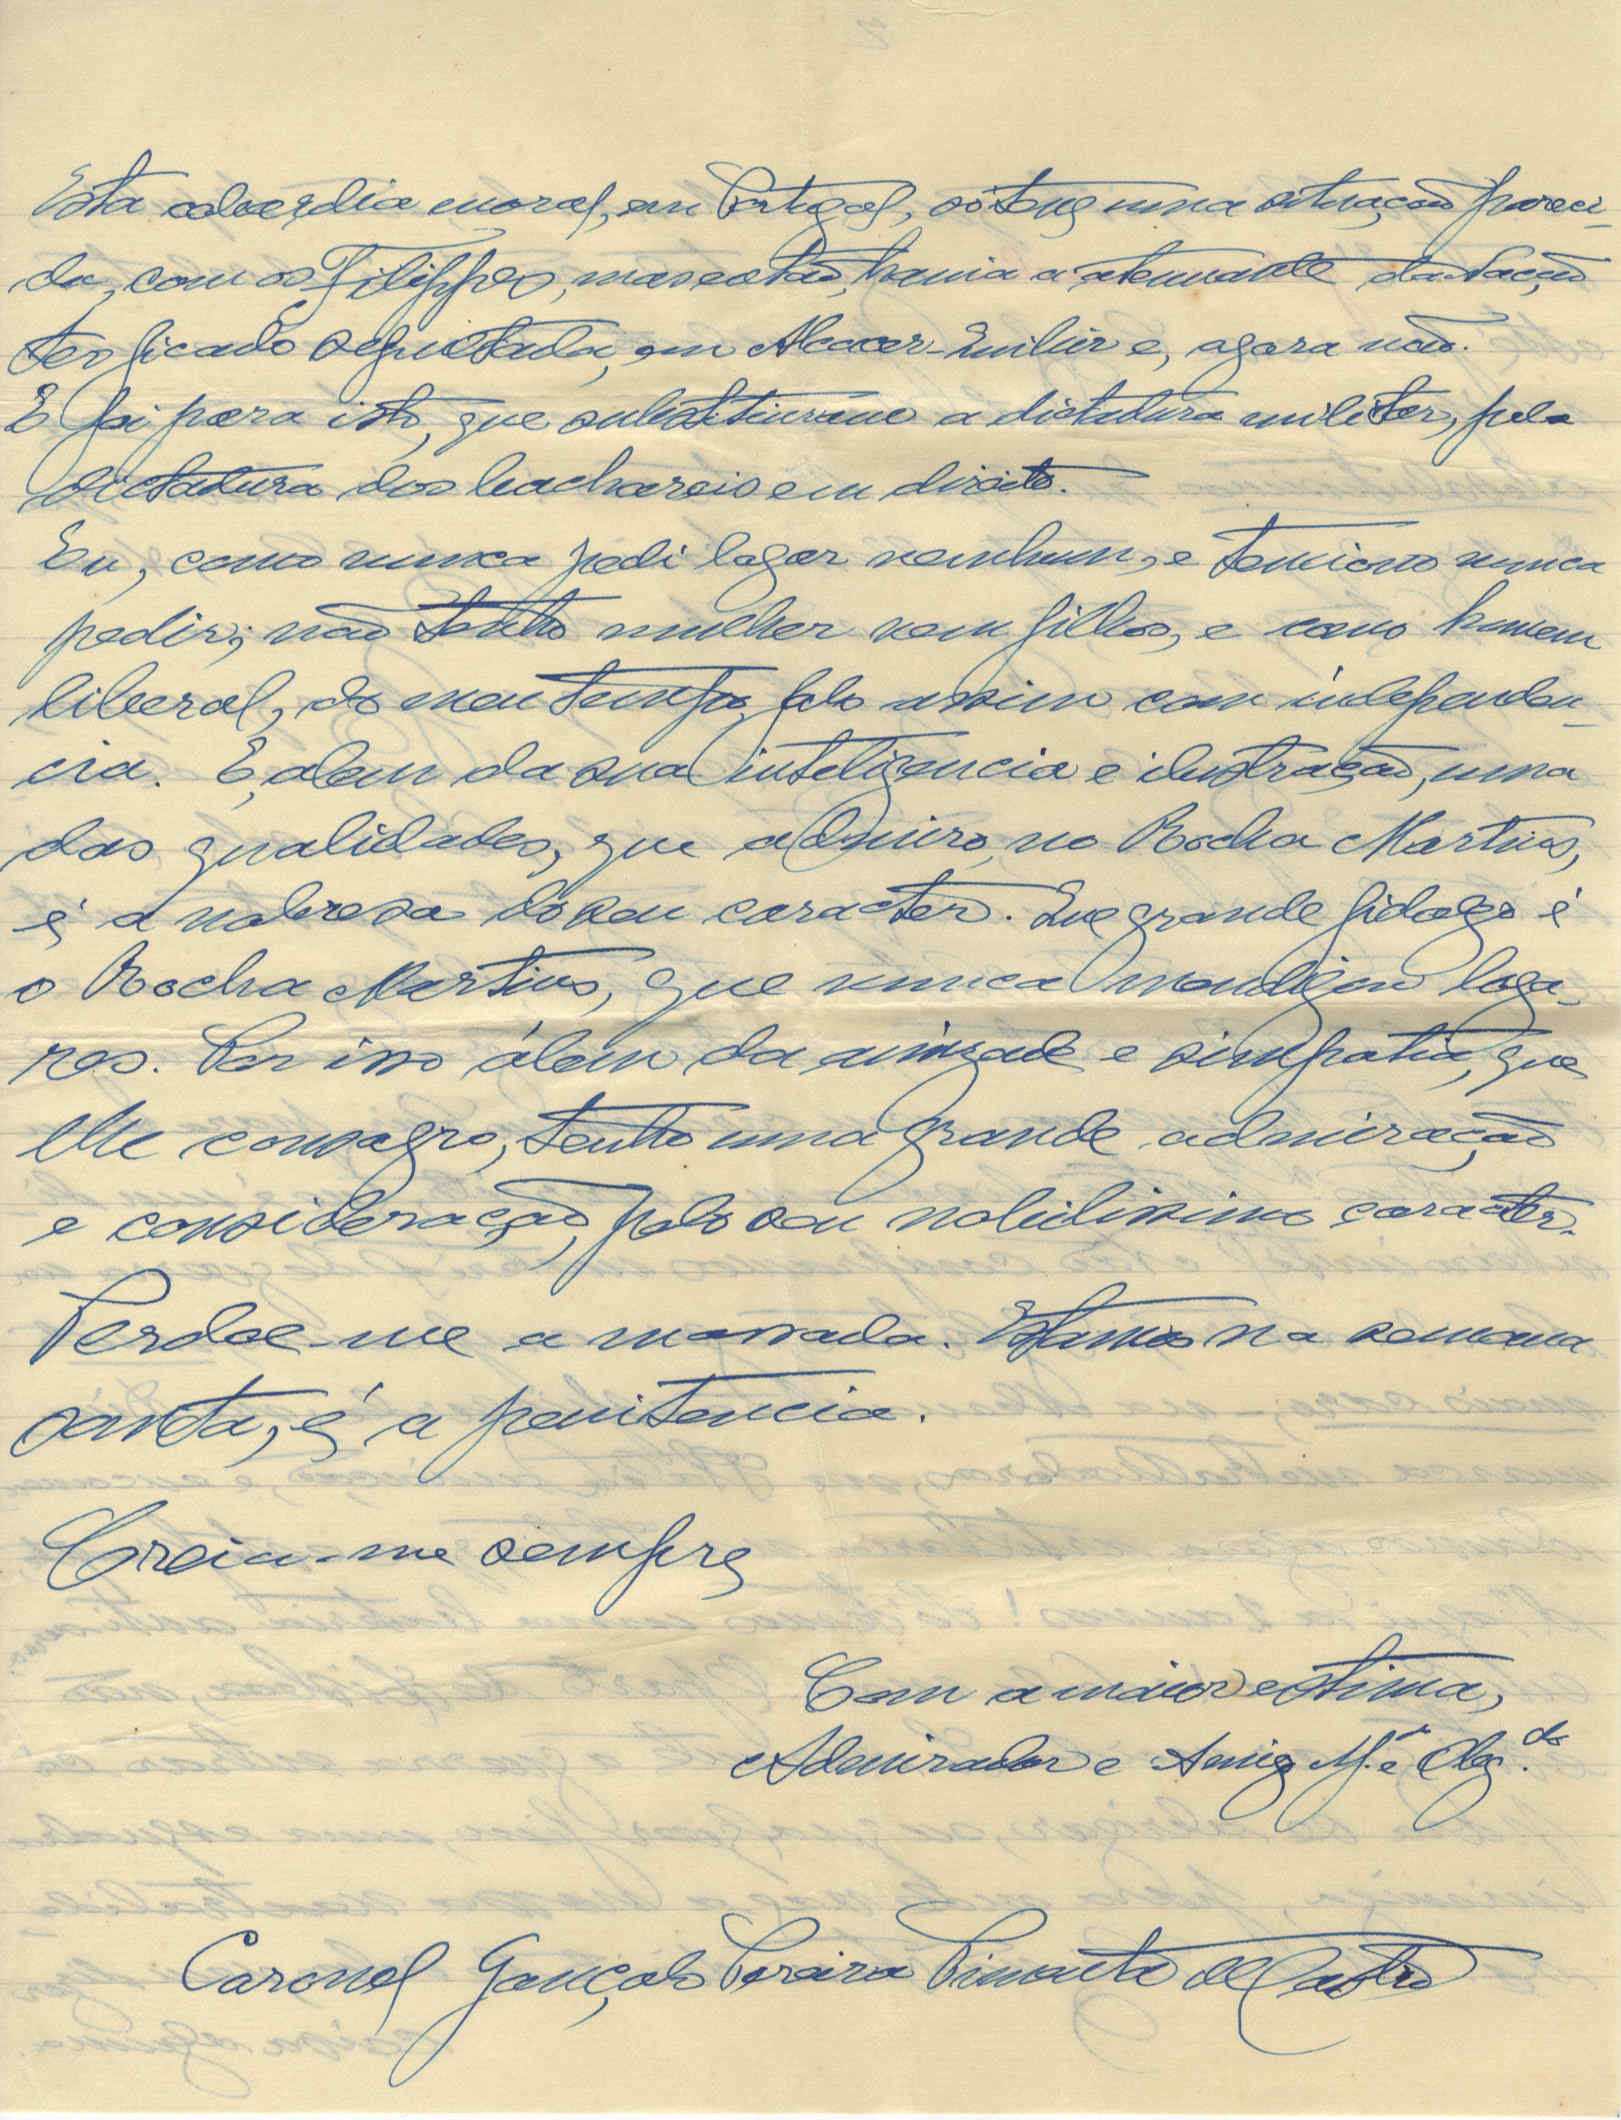 Esta cobardia moral, em Portugal, só teve uma situação pareci-
da, com os Filippes, mas então, havia a atenuante da Nação
ter ficado sepultada, em Alcacer-Quibir e, agora não.
E foi para isto, que substituirame a dictadura militar, pela
dictadura dos bachareis em direito.
Eu, como nunca pedi logar nenhum, e tenciono nunca
pedir; não tenho mulher nem filhos, e como homem
liberal, do meu tempo, falo assim com independen-
cia. E, alem da sua inteligencia e ilustração, uma
das qualidades, que admiro, no Rocha Martins,
é a nobresa do seu caracter. Que grande fidalgo é
o Rocha Martins, que nunca mendigou loga-
res. Por isso álem da amizade e simpatia, que
lhe consagro, tenho uma grande admiração
e consideração, pelo seu nobilissimo caracter.
Perdoe-me a massada. Estamos na semana
santa, é a penitencia.
Creia-me sempre
Com a maior estima,
Admirador e Amigo M.to e Obg.do
Coronel Gonçalo Pereira Pimenta de Castro